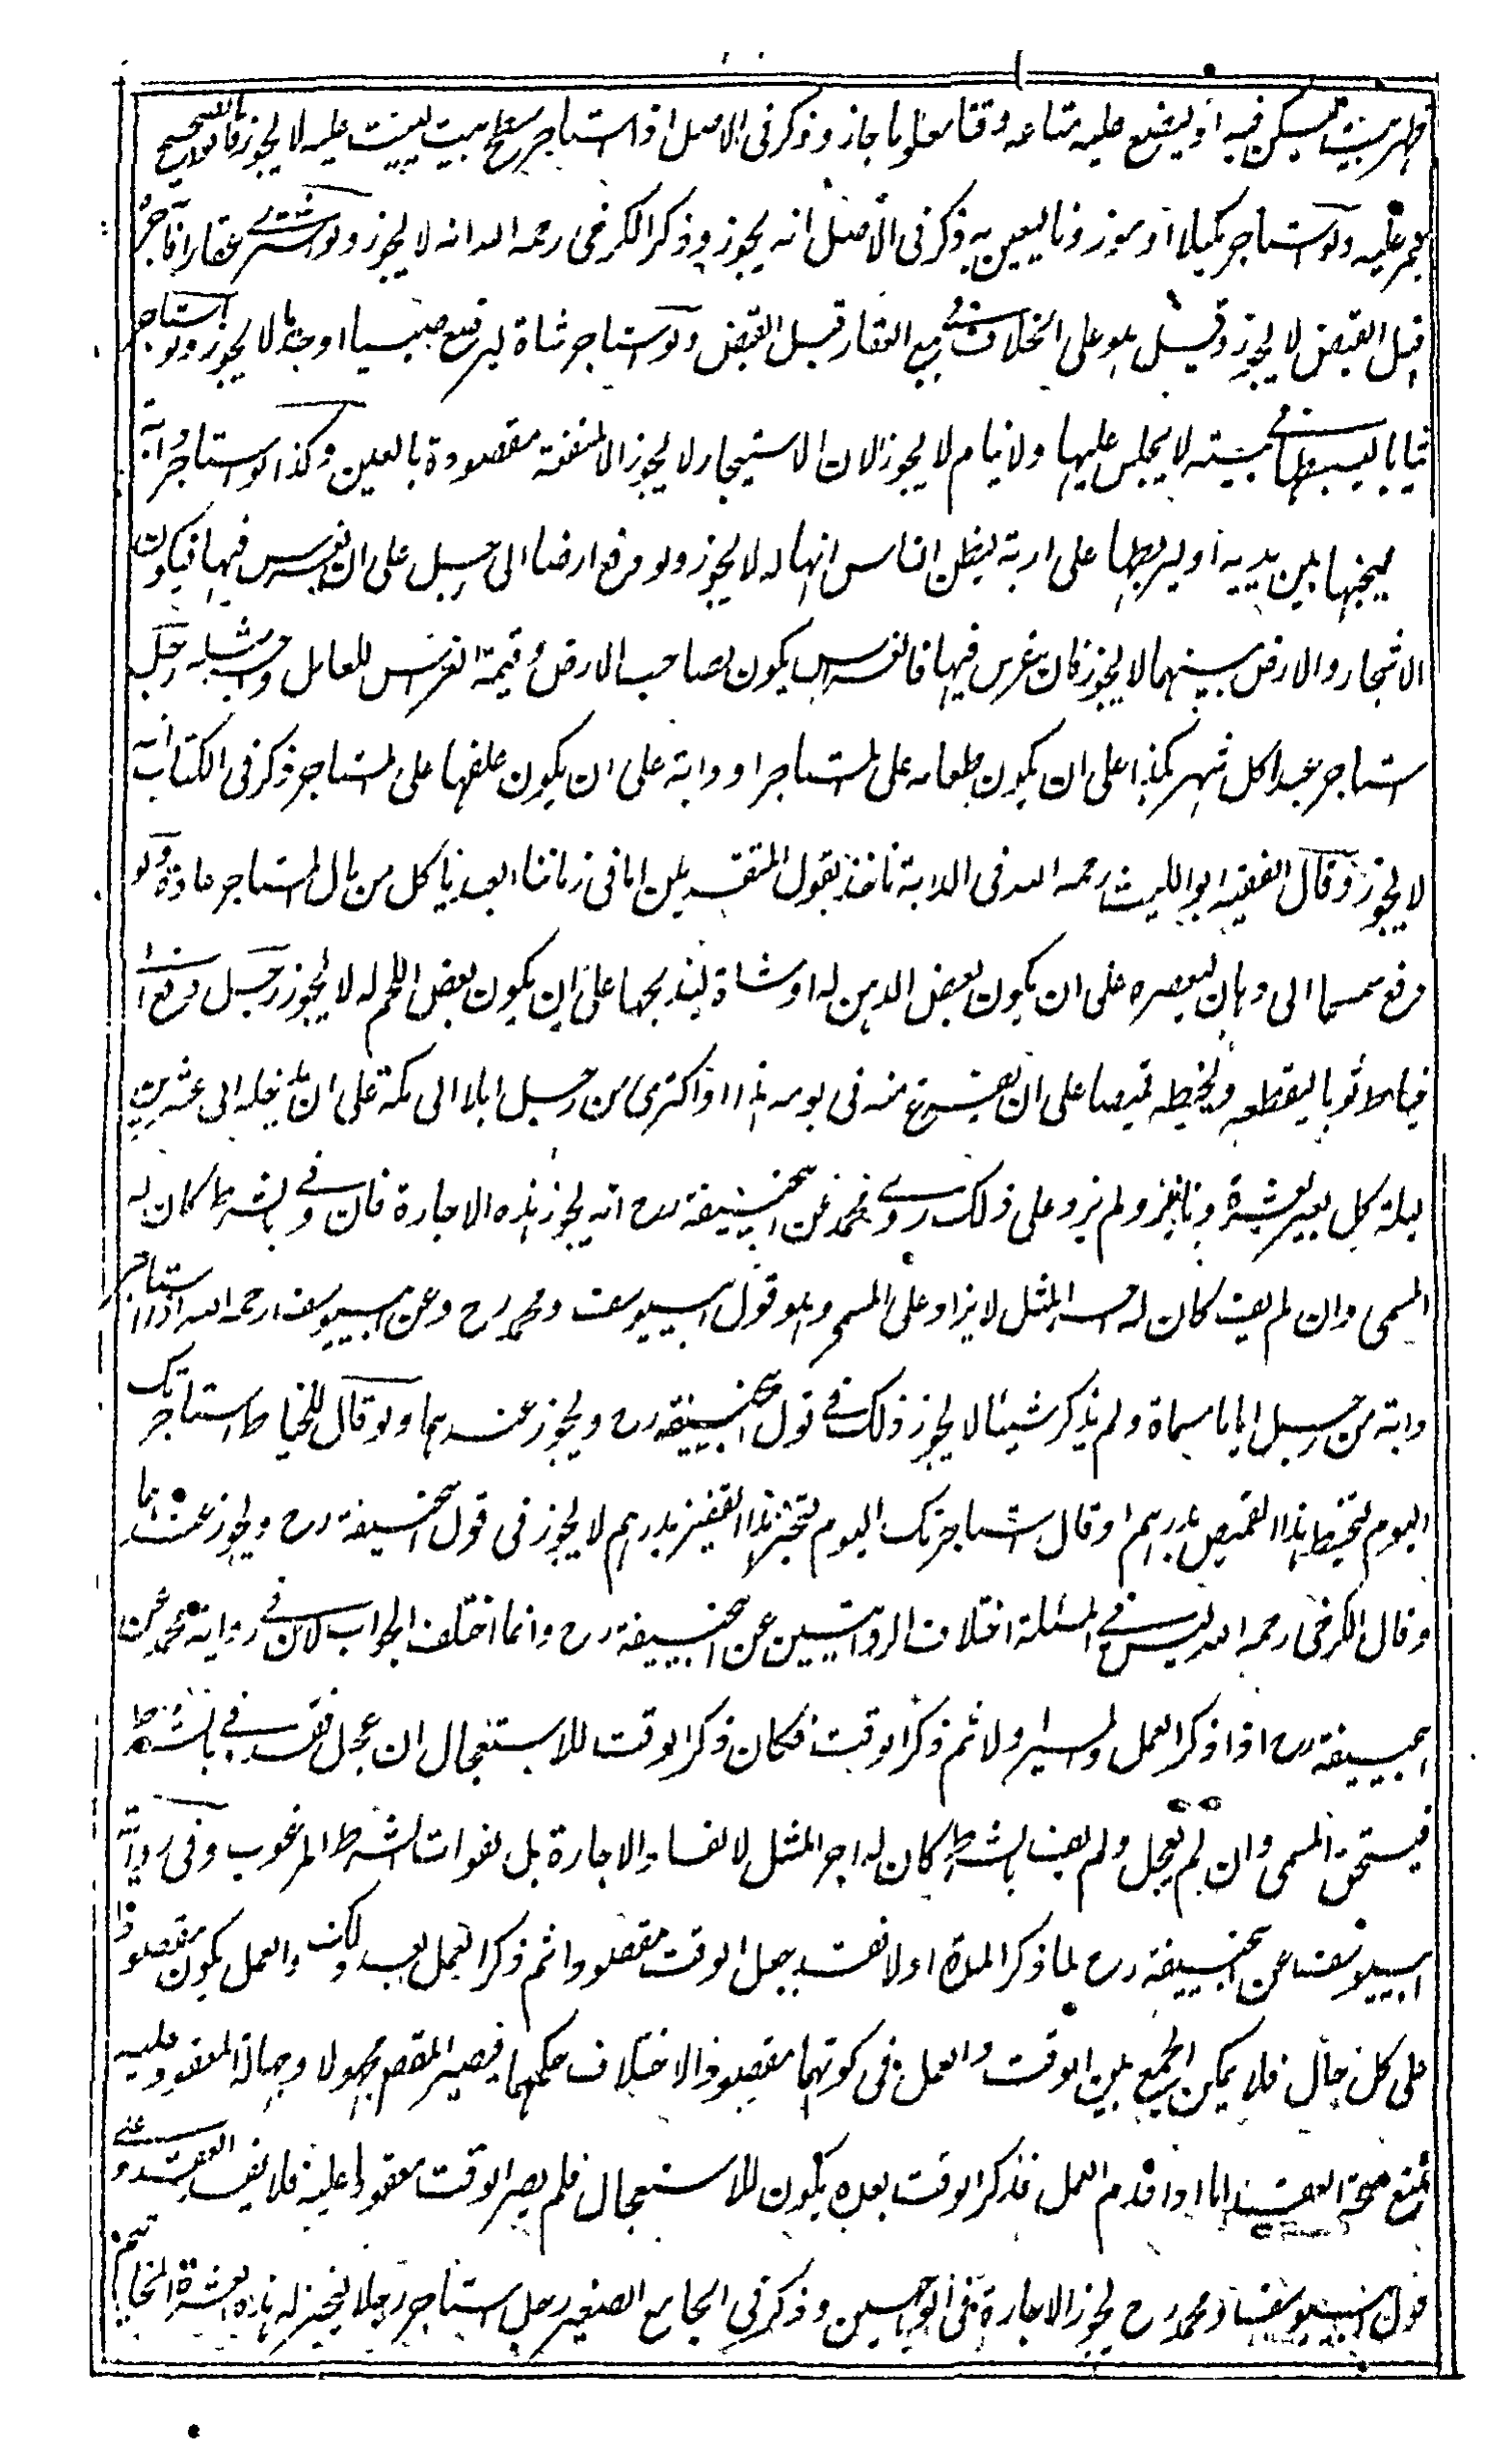 ظهر بيت ليسكن فيه او ليضع عليه متاعه وقتا معلوما جاز وذكر في الاصل اذا استاجر سطح بيت ليبيت عليه لا يجوز قالوا الصحيح
عليه ولو استاجر مكيلا او موزونا ليعين به ذكر في الاصل انه يجوز وذكر الكرخي رحمه الله انه لا يجوز ولو اشترى عقارا فآجر
قبل القبض لا يجوز وقيل هو على الخلاف في بيع العقار قبل القبض ولو استاجر شاة ليرضع صبيا او جديا لا يجوز ولو استاجر
ثيابا ليبسطها في بيته لا يجلس عليها ولا ينام لا يجوز لان الاستيجار لا يجوز الا لمنفعة مقصودة بالعين وكذا لو استاجر دابة
ليجنبها بين يديه او ليربطها على اربة ليظن الناس انها له لا يجوز ولو دفع ارضا الى رجل على ان يغرس فيها فيكون
الاشجار والارض بينهما لا يجوز فان غرس فيها فالغرس يكون لصاحب الارض وقيمة الغرس للعامل واجر مثله رجل
استاجر عبدا كل شهر بكذا على ان يكون طعامه على المستاجر او دابة على ان يكون علفها على المستاجر ذكر في الكتاب انه
لا يجوز وقال الفقيه ابو الليث رحمه الله في الدابة ناخذ بقول المتقدمين اما في زماننا العبد ياكل من مال المستاجر عادة ولو
دفع سمسما الى دهان ليعصره على ان يكون بعض الدهن له او شاة ليذبحها على ان يكون بعض اللحم له لا يجوز رجل دفع الى
خياط ثوبا ليقطعه ويخيطه قميصا على ان يفرغ منه في يومه هذا او اكترى من رجل ابلا الى مكة على ان يدخله الى عشرين
ليلة كل بعير بعشرة دنانير ولم يزد على ذلك روى محمد عن ابيحنيفة رح انه يجوز هذه الاجارة فان وفى بالشرط كان له
المسمى وان لم يف كان له اجر المثل لا يزاد على المسمى وهو قول ابييوسف ومحمد رح وعن ابييوسف رحمه الله اذا استاجر
دابة من رجل اياما مسماة ولم يذكر شيئا لا يجوز ذلك في قول ابيحنيفة رح ويجوز عندهما ولو قال للخياط استاجرتك
اليوم لتخيط هذا القميص بدرهم او قال استاجرتك اليوم لتخبز هذا القفيز بدرهم لا يجوز في قول ابيحنيفة رح ويجوز عندهما
وقال الكرخي رحمه الله ليس في المسئلة اختلاف الروايتين عن ابيحنيفة رح وانما اختلف الجواب لان في رواية محمد عن
ابيحنيفة رح اذا ذكر العمل والسير اولا ثم ذكر الوقت فكان ذكر الوقت للاستعجال ان عجل فقد وفى بالشرط
فيستحق المسمى وان لم يعجل ولم يف بالشرط كان له اجر المثل لا لفساد الاجارة بل لفوات الشرط المرغوب وفي رواية
ابييوسف عن ابيحنيفة رح لما ذكر المدة اولا فقد جعل الوقت مقصودا ثم ذكر العمل بعد ذلك والعمل يكون مقصودا
على كل حال فلا يمكن الجمع بين الوقت والعمل في كونهما مقصودا لاختلاف حكمهما فيصير المقصود مجهولا وجهالة المعقود عليه
تمنع صحة العقد اما اذا قدم العمل فذكر الوقت بعده يكون للاستعجال فلم يصر الوقت معقودا عليه فلا يفسد العقد وعلى
قول ابييوسف ومحمد رح يجوز الاجارة في الوجهين وذكر في الجامع الصغير رجل استاجر رجلا ليخبز له هذه العشرة المخاتيم